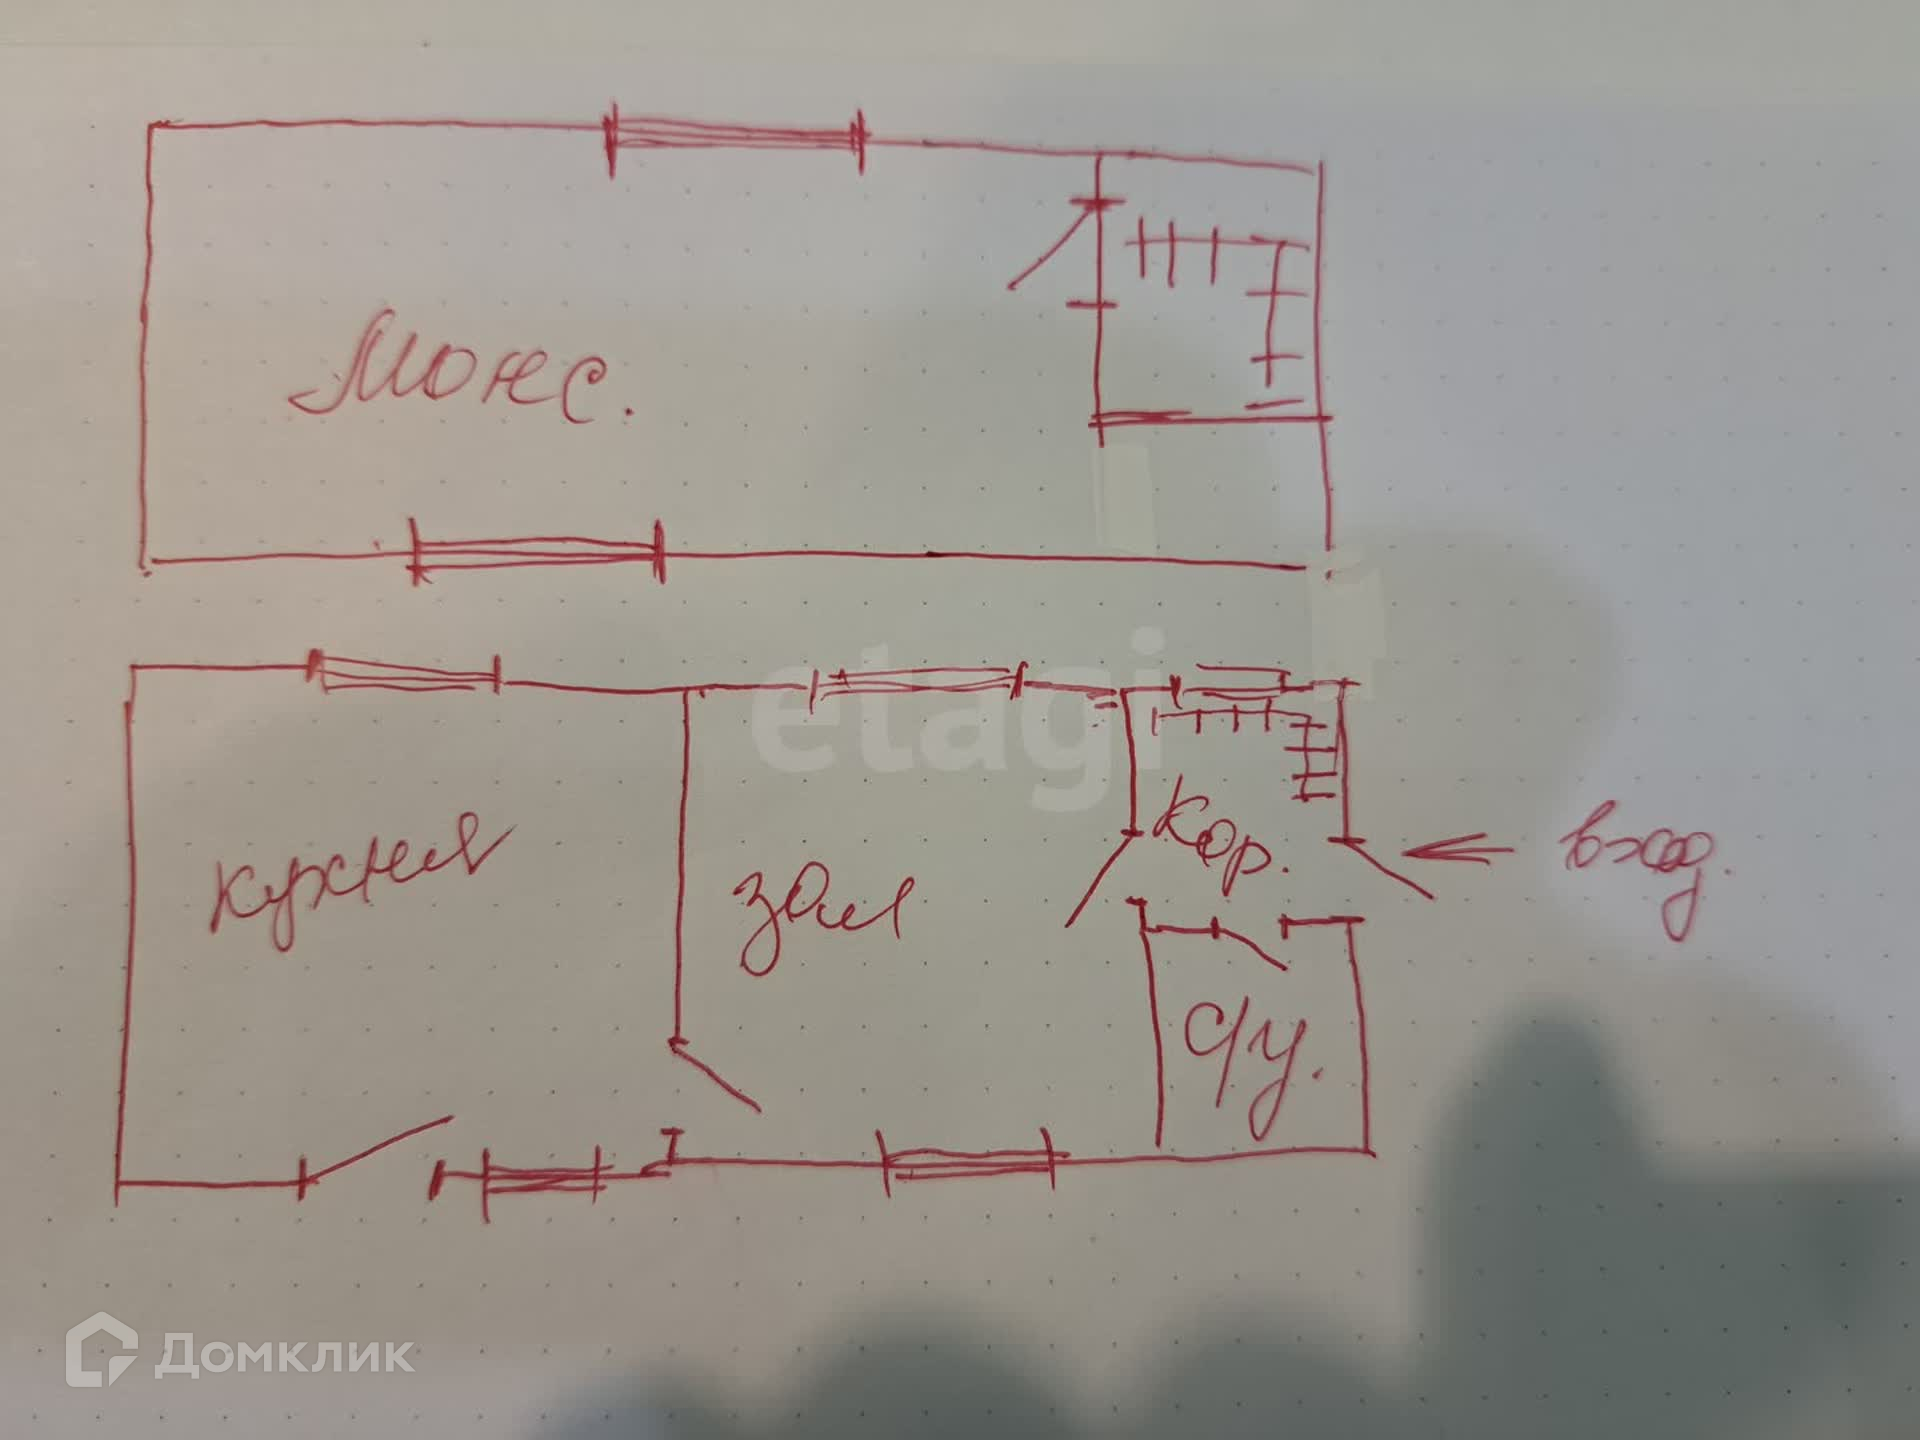 Монс.
etagi
кухня
зал
кор.
вход.
с/у.
Домклик